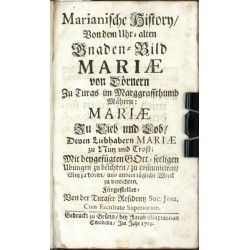 Marianische History/
Von dem Uhr-alten
Gnaden-Bild
MARIÆ
von Dörnern
Zu Turas im Marggraffthumb
Mähren:
MARIÆ
Zu Lieb und Lob/
Denen Liebhabern MARIÆ
zu Nutz und Trost:
Mit beygefügten GOtt-seeligen
Ubungen zu beichten/ zu communiciren/
Meß zu hören/ und andere tägliche Werck
zu verrichten.
Fürgestellet
Von der Turaser Residenz Soc: Jesu.
Cum Facultate Superiorum.
Gedruckt zu Brünn/ bey Jacob Maximilian
Swoboda/ Im Jahr